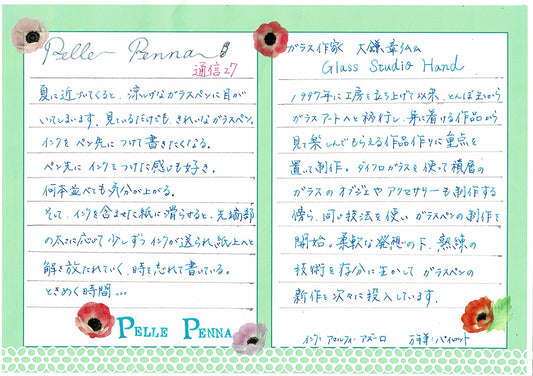 Pelle Penna
通信27
夏に近づいてくると、涼しげなガラスペンに目が
いてしまいます。見ているだけでも、きれいなガラスペン。
インクをペン先につけて書きたくなる。
ペン先にインクをつけた感じも好き。
何本並べても気分が上がる。
そして、インクを含ませた紙に滑らせると、先端部
の太さに応じて少しずつインクが送られ、紙上へと
解き放たれていく、時を忘れて書いている。
ときめく時間…
PELLE PENNA
ガラス作家 大鎌章弘
Glass Studio Hand
1997年に工房を立ち上げて以来、とんぼ玉から
ガラスアートへと移行し、身に着ける作品から
見て楽しんでもらえる作品作りに重点を
置いて制作。ダイクロガラスを使って積層の
ガラスのオブジェやアクセサリーも制作する
傍ら、同じ技法を使いガラスペンの制作を
開始。柔軟な発想の下、熟練の
技術を存分に生かしてガラスペンの
新作を次々に投入しています。
インク:アマルフィ・アズーロ 万年筆:パイロット